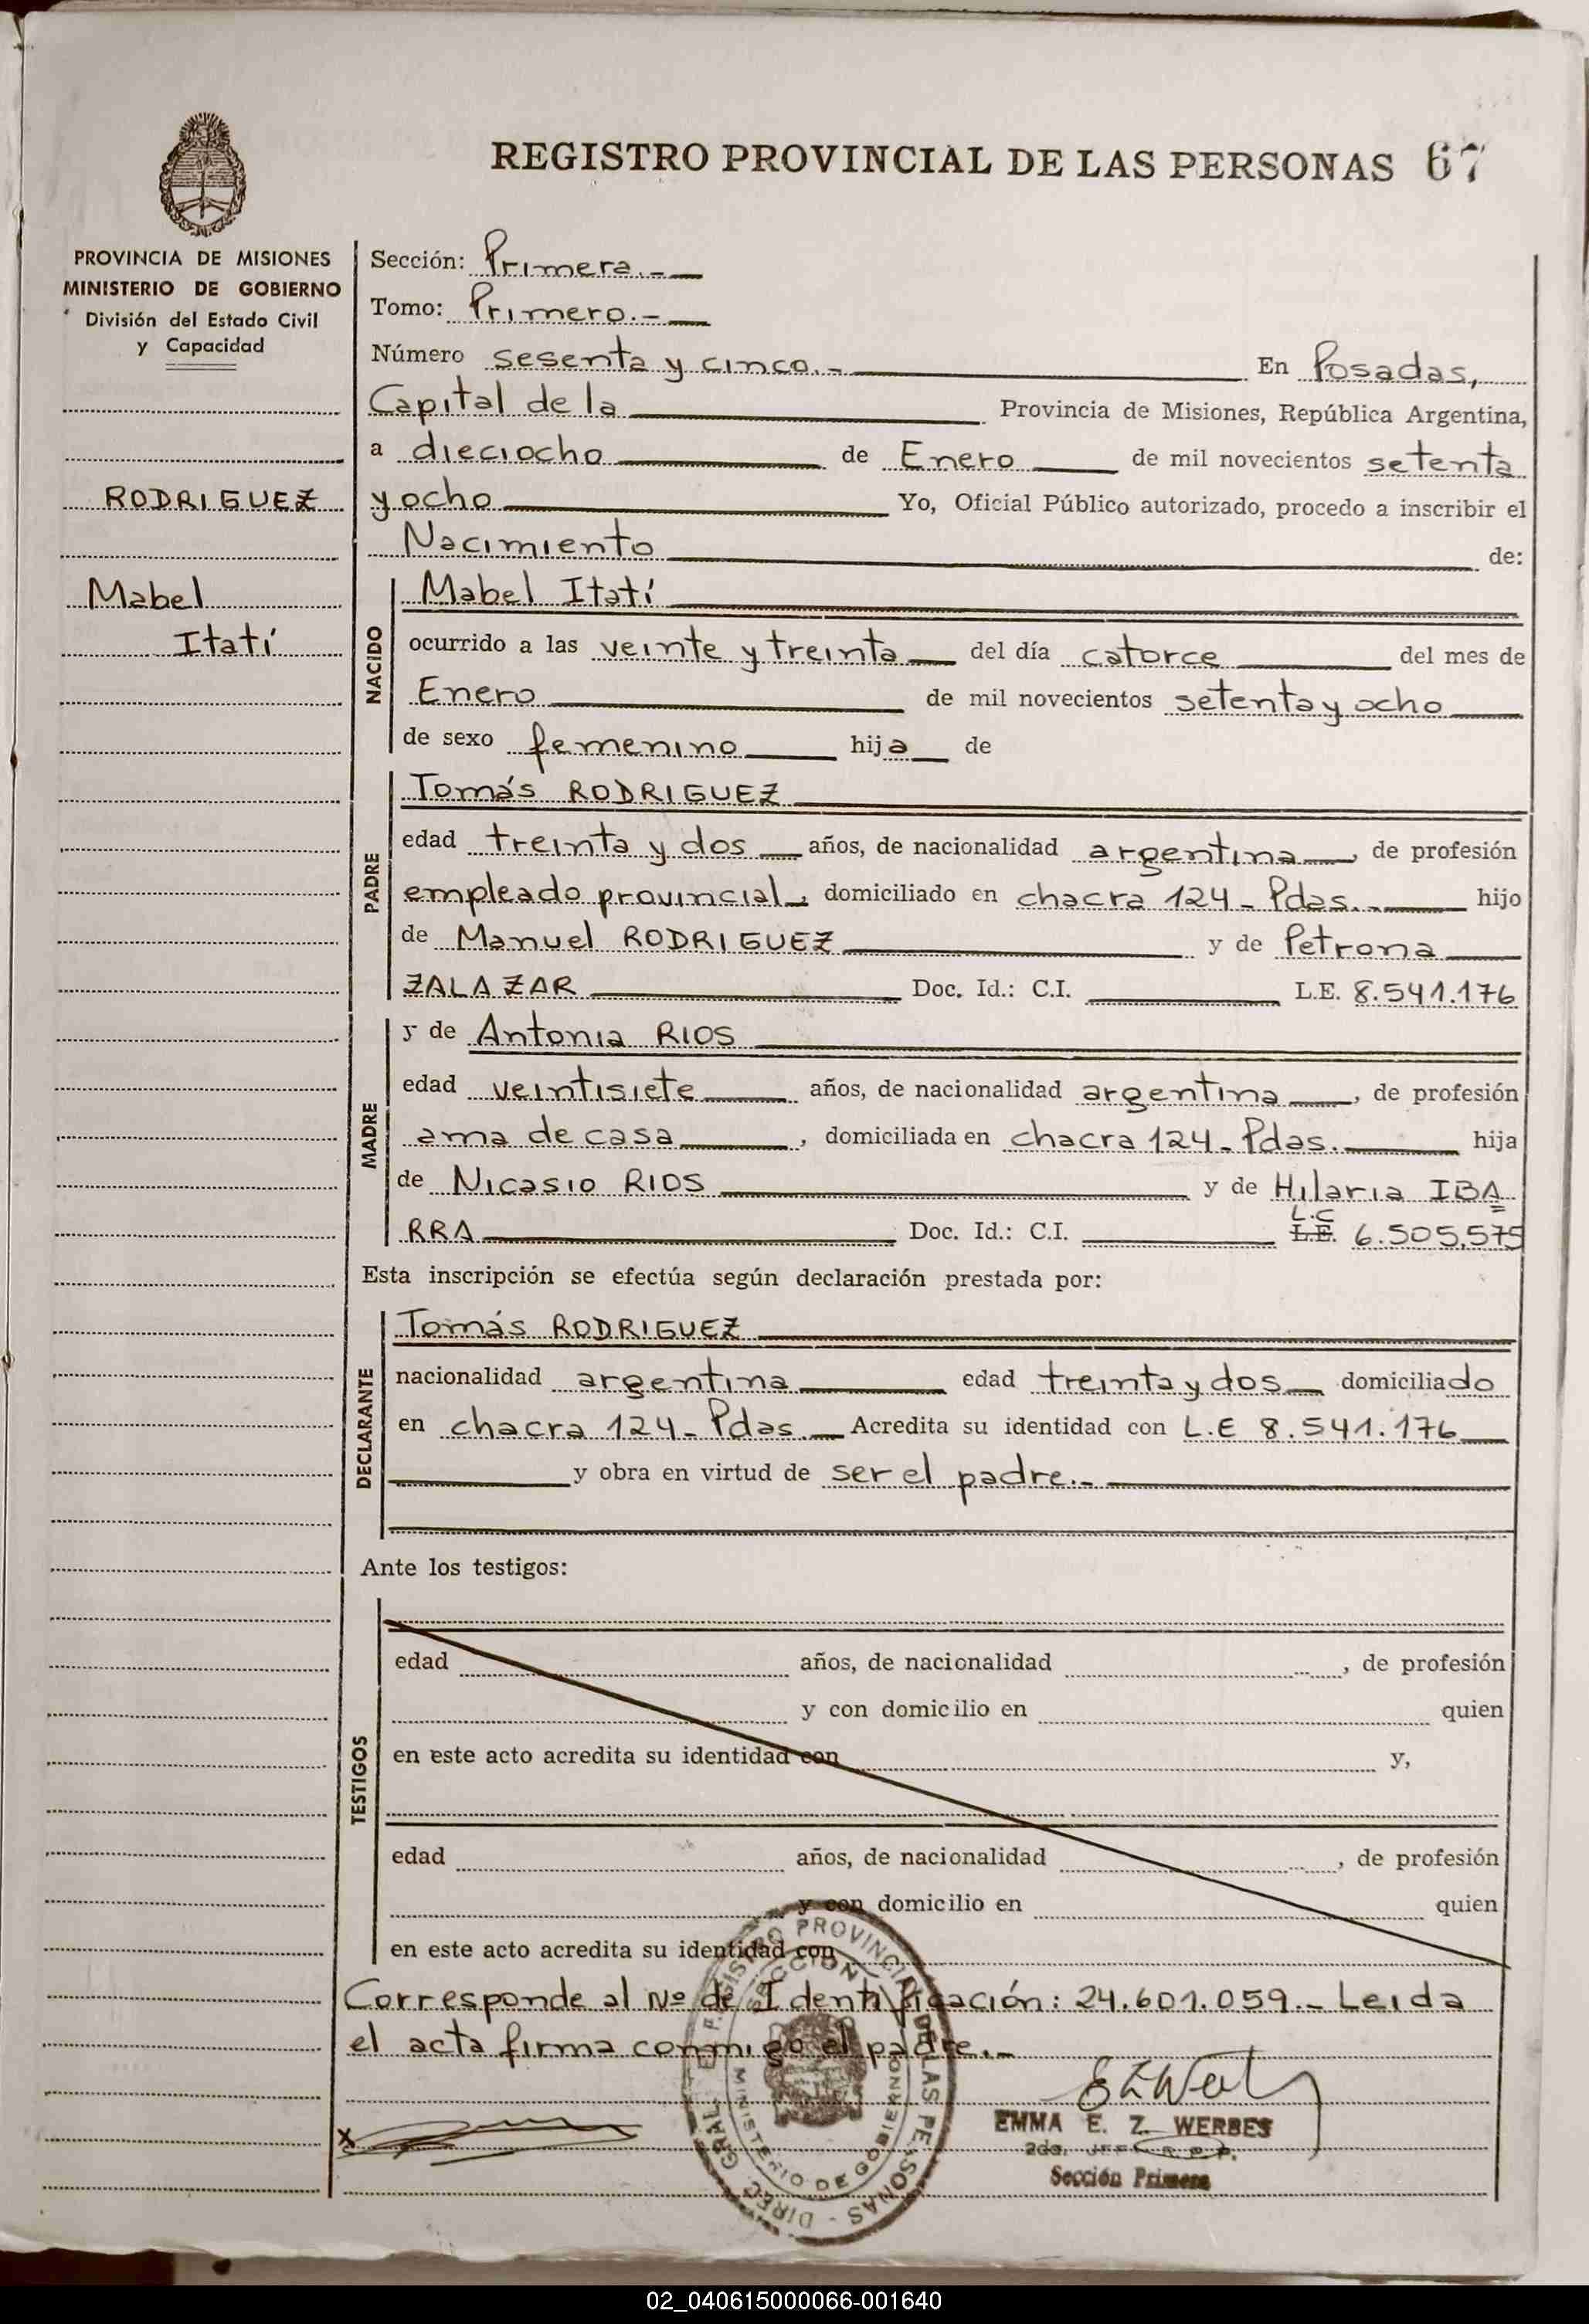 REGISTRO PROVINCIAL DE LAS PERSONAS 67
PROVINCIA DE MISIONES
MINISTERIO DE GOBIERNO
División del Estado Civil
y Capacidad
RODRIGUEZ
Mabel
Itatí
Sección: Primera.-
Tomo: Primero.-
Número sesenta y cinco.- En Posadas,
Capital de la Provincia de Misiones, República Argentina,
a dieciocho de Enero de mil novecientos setenta
y ocho Yo, Oficial Público autorizado, procedo a inscribir el
Nacimiento de:
NACIDO
Mabel Itatí
ocurrido a las veinte y treinta del día catorce del mes de
Enero de mil novecientos setenta y ocho
de sexo femenino hija de
PADRE
Tomás RODRIGUEZ
edad treinta y dos años, de nacionalidad argentina, de profesión
empleado provincial, domiciliado en chacra 124- Pdas.- hijo
de Manuel RODRIGUEZ y de Petrona
ZALAZAR Doc. Id.: C.I. L.E. 8.541.176
MADRE
y de Antonia RIOS
edad veintisiete años, de nacionalidad argentina, de profesión
ama de casa, domiciliada en chacra 124- Pdas. hija
de Nicasio RIOS y de Hilaria IBA
L.C
RRA Doc. Id.: C.I. L.E. 6.505.575
Esta inscripción se efectúa según declaración prestada por:
DECLARANTE
Tomás RODRIGUEZ
nacionalidad argentina edad treinta y dos domiciliado
en chacra 124- Pdas. Acredita su identidad con L.E 8.541.176
y obra en virtud de ser el padre.-
Ante los testigos:
TESTIGOS
edad años, de nacionalidad , de profesión
y con domicilio en quien
en este acto acredita su identidad con y,
edad años, de nacionalidad , de profesión
y con domicilio en quien
en este acto acredita su identidad con
Corresponde al Nº de Identificación: 24.601.059.- Leida
el acta firma conmigo el padre.-
DIREC. GRAL. REGISTRO PROVINCIAL DE LAS PERSONAS
SECCION
MINISTERIO DE GOBIERNO
EMMA E. Z. WERBES
2do. JEFE R. P. P.
Sección Primera
02_040615000066-001640